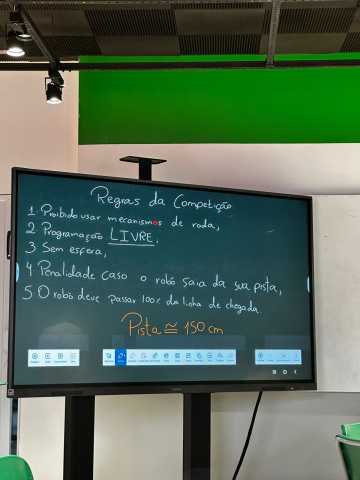 Regras da Competição:
1. Proibido usar mecanismos de roda;
2 Programação LIVRE;
3 Sem esfera;
4. Penalidade caso o robô saia da sua pista;
5. O robô deve passar 100% da linha de chegada.
Pista ≅ 150 cm